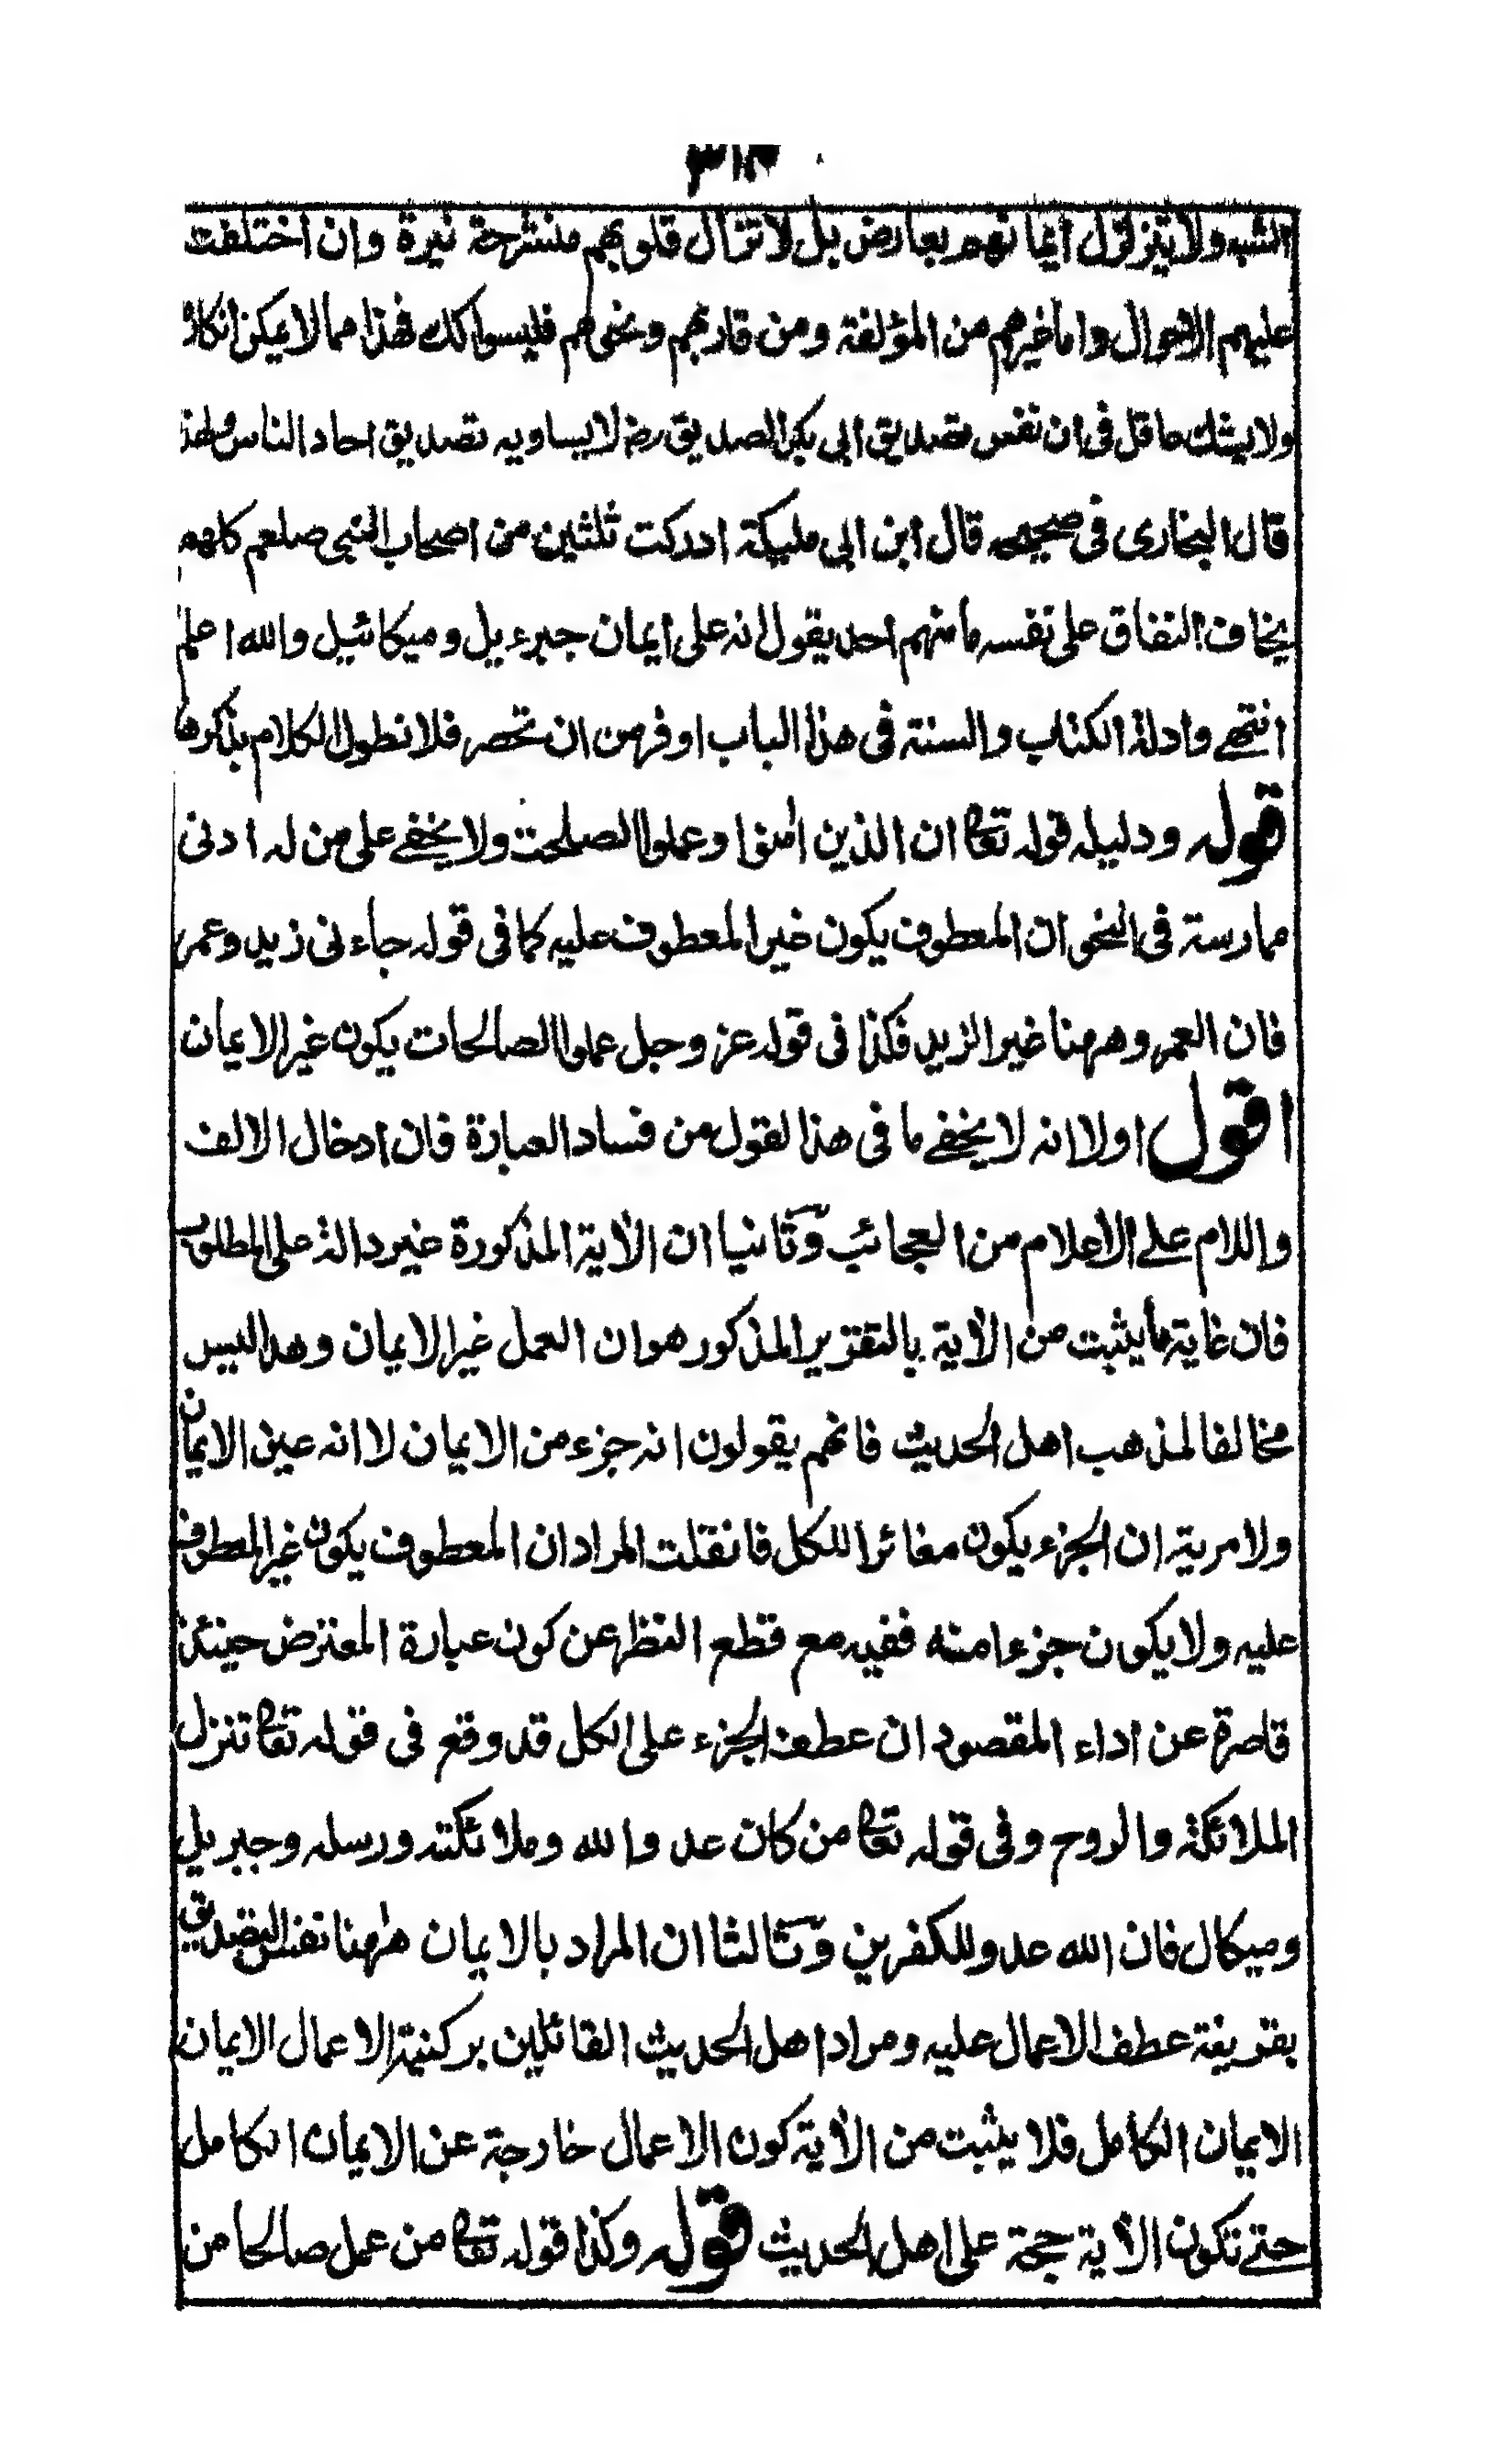 ٣١٣
الشبه ولا يتزلزل ايمانهم بعارض بل لا تزال قلوبهم منشرحة نيرة وان اختلفت
عليهم الاحوال واما غيرهم من المؤلفة ومن قاربهم ونحوهم فليسوا كك فهذا مما لا يمكن انكاره
ولا يشك عاقل فى ان نفس تصديق ابى بكر الصديق رض لا يساويه تصديق احاد الناس ولهذا
قال البخارى فى صحيحه قال ابن ابى مليكة ادركت ثلثين من اصحاب النبى صلعم كلهم
يخاف النفاق على نفسه ما منهم احد يقول انه على ايمان جبرءيل وميكائيل والله اعلم
انتهے وادلة الكتاب والسنة فى هذا الباب اوفر من ان تحصر فلا نطول الكلام بذكرها
قوله ودليله قوله تعا ان الذين امنوا وعملوا الصلحت ولا يخفے على من له ادنى
ممارسة فى النحو ان المعطوف يكون غير المعطوف عليه كما فى قوله جاءنى زيد وعمر
فان العمر وههنا غير الزيد فكذا فى قوله عز وجل عملوا الصالحات يكون غير الايمان
اقول اولا انه لا يخفے ما فى هذا لقول من فساد العبارة فان ادخال الالف
واللام علے الاعلام من العجائب وثانيا ان الأية المذكورة غير دالة على المطلوب
فان غاية ما يثبت من الأية بالتقرير المذكور هو ان العمل غير الايمان وهذا ليس
مخالفا لمذهب اهل الحديث فانهم يقولون انه جزء من الايمان لا انه عين الايمان
ولا مرية ان الجزء يكون مغائرا للكل فانقلت المراد ان المعطوف يكون غير المعطوف
عليه ولا يكون جزءا منه ففيه مع قطع النظر عن كون عبارة المعترض حينئذ
قاصرة عن اداء المقصود ان عطف الجزء على الكل قد وقع فى قوله تعا تنزل
الملائكة والروح وفى قوله تعا من كان عدوا لله وملائكته ورسله وجبريل
وميكال فان الله عدو للكفرين وثالثا ان المراد بالايمان ههنا نفس التصديق
بقرينة عطف الاعمال عليه ومراد اهل الحديث القائلين بركنية الاعمال الايمان
الايمان الكامل فلا يثبت من الأية كون الاعمال خارجة عن الايمان الكامل
حتے تكون الأية حجة على اهل الحديث قوله وكذا قوله تعا من عمل صالحا من